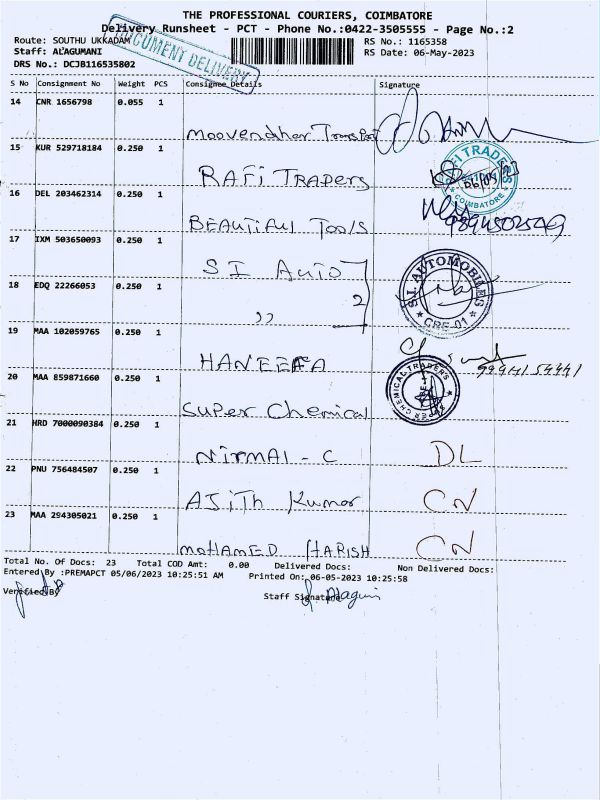 THE PROFESSIONAL COURIERS, COIMBATORE
Delivery Runsheet - PCT - Phone No.:0422-3505555 - Page No.:2
Route: SOUTHU UKKADAM
RS No.: 1165358
Staff: ALAGUMANI
RS Date: 06-May-2023
DRS No.: DCJB116535802
DOCUMENT DELIVERY
S No Consignment No Weight PCS Consignee Details Signature
14 CNR 1656798 0.055 1
Moovendhar Transport
15 KUR 529718184 0.250 1
RAFI TRADERS
RAFI TRADERS
COIMBATORE
16 DEL 203462314 0.250 1
BEAUTIFUL Tools
9894502549
17 IXM 503650093 0.250 1
SI Auto
18 EDQ 22266053 0.250 1
,, 2
S.I. AUTOMOBILES
CBE-01
19 MAA 102059765 0.250 1
HANEEFA
20 MAA 859871660 0.250 1
Super Chemical
SUPER CHEMICAL TRADERS
21 HRD 7000090384 0.250 1
NirmAl - C DL
22 PNU 756484507 0.250 1
AJITh Kumar CN
23 MAA 294305021 0.250 1
MOHAMED HARISH CN
Total No. Of Docs: 23 Total COD Amt: 0.00 Delivered Docs: Non Delivered Docs:
Entered By :PREMAPCT 05/06/2023 10:25:51 AM Printed On: 06-05-2023 10:25:58
Verified By Staff Signature